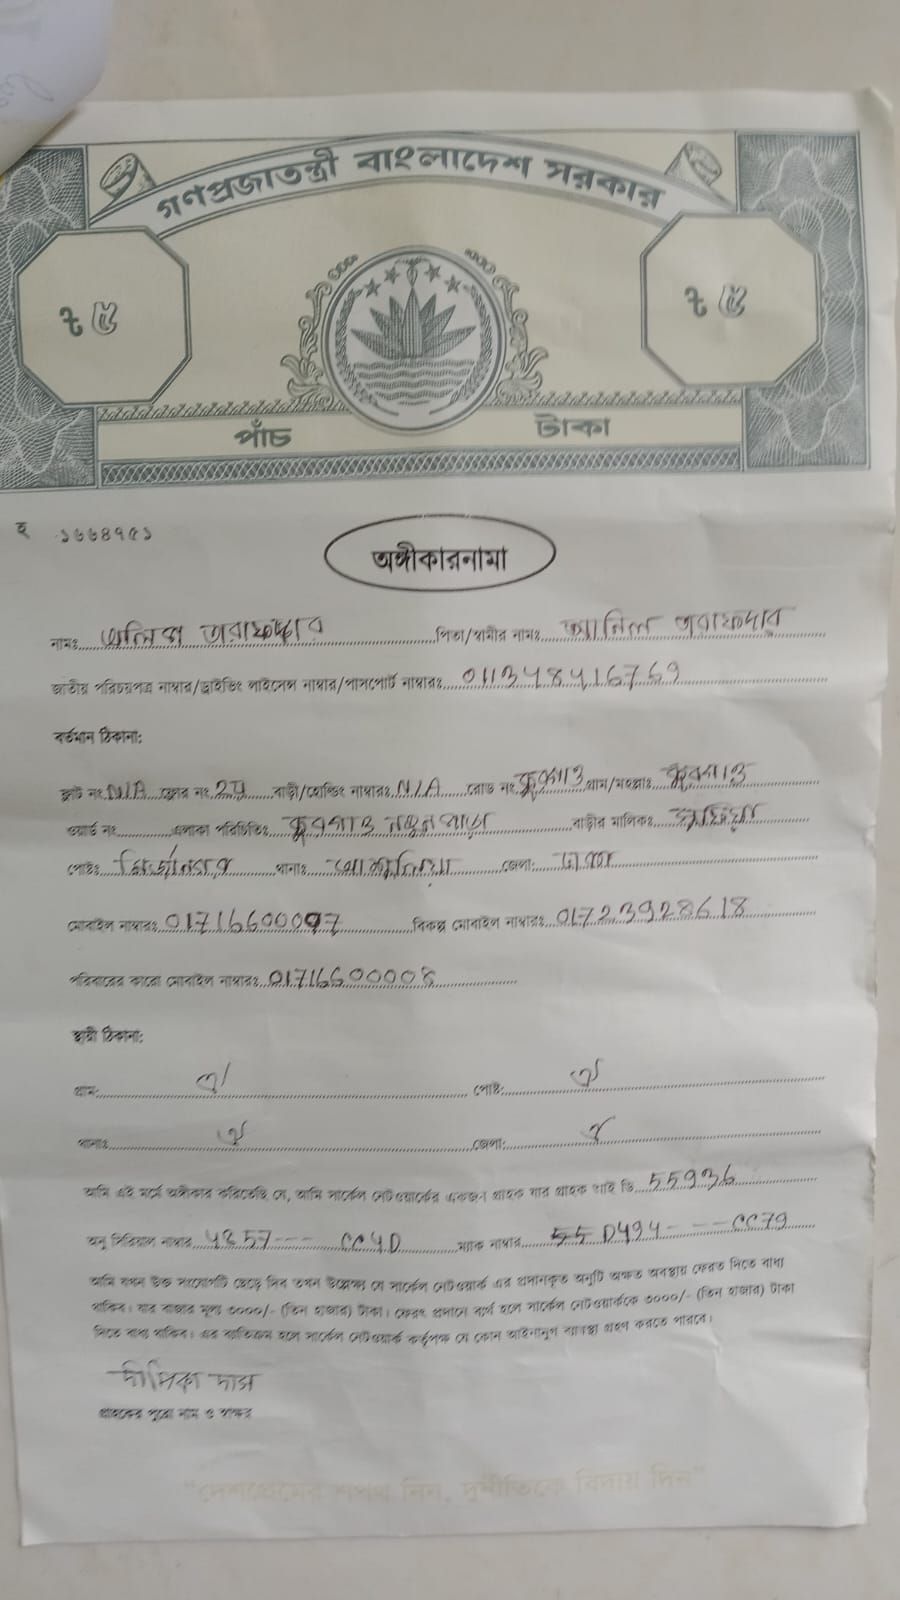 গণপ্রজাতন্ত্রী বাংলাদেশ সরকার
৳ ৫ ৳ ৫
পাঁচ টাকা
হ ১৬৬৪৭৫১
অঙ্গীকারনামা
নামঃ তরফদার পিতা/স্বামীর নামঃ অনিল তরফদার
জাতীয় পরিচয়পত্র নাম্বার/ড্রাইভিং লাইসেন্স নাম্বার/পাসপোর্ট নাম্বারঃ
বর্তমান ঠিকানা:
ফ্লাট নং N/A ফ্লোর নং 2য় বাড়ী/হোল্ডিং নাম্বারঃ N/A রোড নং গ্রাম/মহল্লাঃ
ওয়ার্ড নং এলাকা পরিচিতিঃ নতুন পাড়া বাড়ীর মালিকঃ
পোষ্টঃ মির্জানগর থানাঃ আশুলিয়া জেলা: ঢাকা
মোবাইল নাম্বারঃ বিকল্প মোবাইল নাম্বারঃ 01723928618
পরিবারের কারো মোবাইল নাম্বারঃ 01716600008
স্থায়ী ঠিকানা:
গ্রাম: ঐ পোষ্ট: ঐ
থানাঃ ঐ জেলা: ঐ
আমি এই মর্মে অঙ্গীকার করিতেছি যে, আমি সার্কেল নেটওয়ার্কের একজন গ্রাহক যার গ্রাহক আই ডি 55936
অনু সিরিয়াল নাম্বার 4857--- CC4D ম্যাক নাম্বার D494----CC79
আমি যখন উক্ত সংযোগটি ছেড়ে দিব তখন উল্লেক্ষ্য যে সার্কেল নেটওয়ার্ক এর প্রদানকৃত অনুটি অক্ষত অবস্থায় ফেরত দিতে বাধ্য
থাকিব। যার বাজার মূল্য ৩০০০/- (তিন হাজার) টাকা। ফেরৎ প্রদানে ব্যর্থ হলে সার্কেল নেটওয়ার্ককে ৩০০০/- (তিন হাজার) টাকা
দিতে বাধ্য থাকিব। এর ব্যতিক্রম হলে সার্কেল নেটওয়ার্ক কর্তৃপক্ষ যে কোন আইনানুগ ব্যবস্থা গ্রহণ করতে পারবে।
দীপিকা দাস
গ্রাহকের পুরো নাম ও স্বাক্ষর
"দেশপ্রেমের শপথ নিন, দুর্নীতিকে বিদায় দিন"